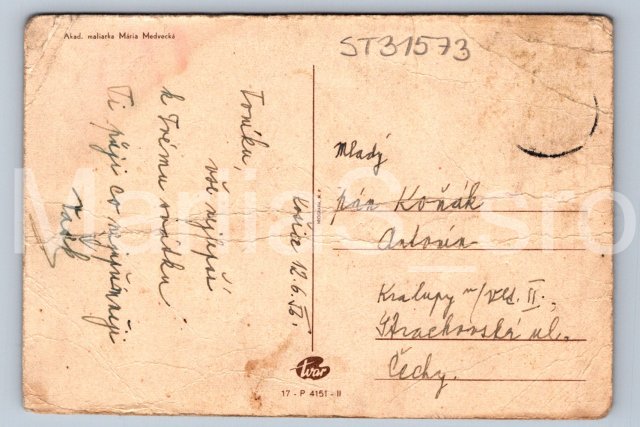 Akad. maliarka Mária Medvecká
ST31573
Toníku,
vše nejlepší
k Tvému svátku
Ti přeji co nejupřímněji
12.6.
Mladý
pán Koňák
Antonín
Kralupy n/Vlt. II.,
Strachovská ul.
Čechy.
tvar
17 - P 4151 - II